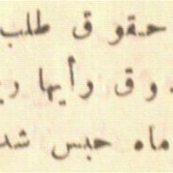 حقوق طلب
وق وأيها
ماه حبس شد